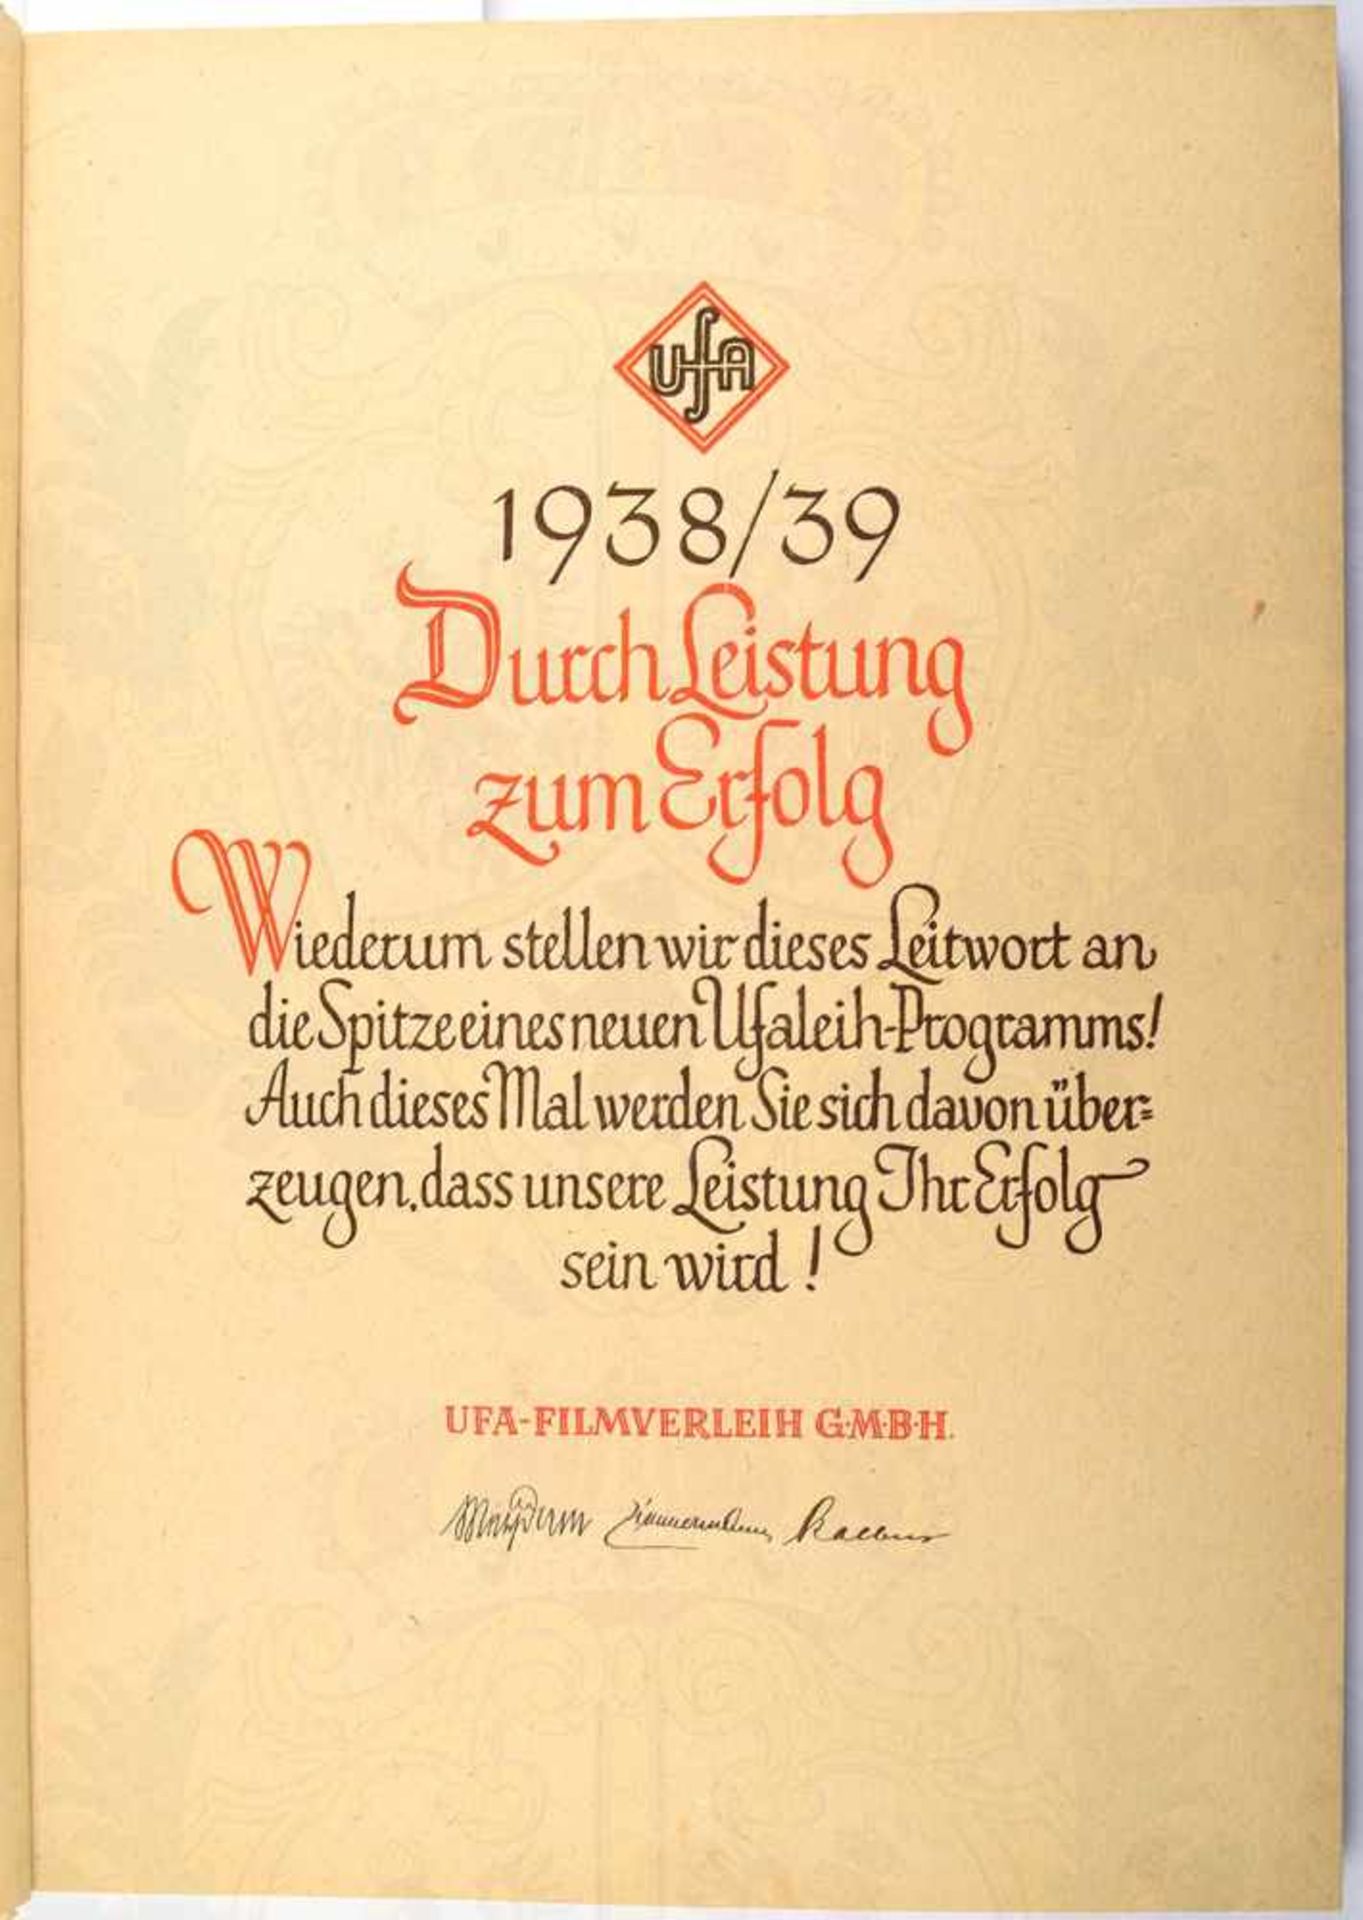 UfA
1938/39
Durch Leistung
zum Erfolg
Wiederum stellen wir dieses Leitwort an
die Spitze eines neuen Ufaleih-Programms!
Auch dieses Mal werden Sie sich davon über=
zeugen, dass unsere Leistung Ihr Erfolg
sein wird!
UFA-FILMVERLEIH G·M·B·H.